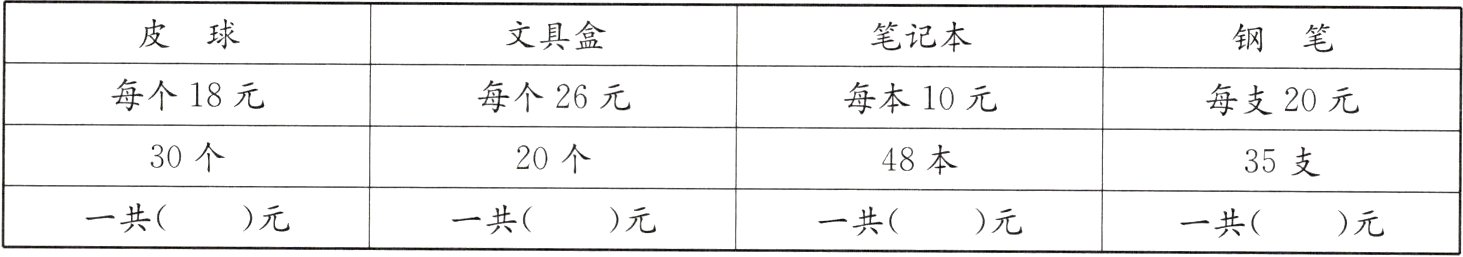 皮 球 文具盒 笔记本 钢 笔
每个 18 元 每个 26 元 每本 10 元 每支 20 元
30 个 20 个 48 本 35 支
一共( )元 一共( )元 一共( )元 一共( )元